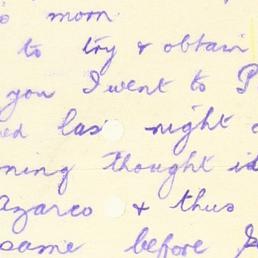 moon
to try & obtain
you I went to P
ed las night
ning thought id
azarco & thus
same before